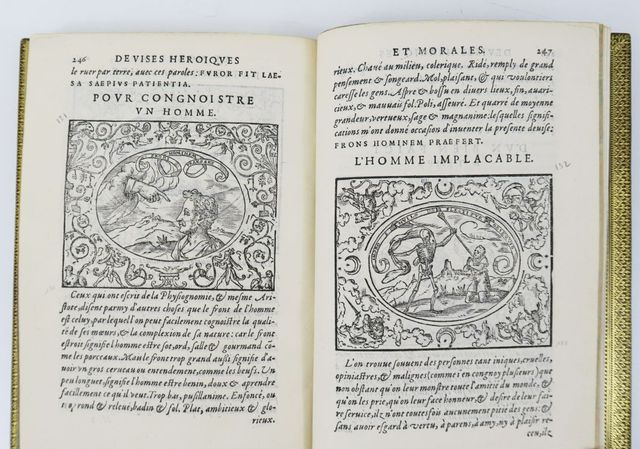 246
DEVISES HEROIQVES
le ruer par terre, auec ces paroles: FVROR FIT LAE-
SA SAEPIVS PATIENTIA.
POVR CONGNOISTRE
VN HOMME.
131
Ceux qui ont escrit de la Physiognomie, & mesme Ari-
stote, disent parmy d'autres choses que le front de l'homme
est celuy, par lequel l'on peut facilement cognoistre la quali-
té de ses mœurs, & la complexion de sa nature: car le front
estroit signifie l'homme estre sot, ord, salle & gourmand cõ-
me les porceaux. Mais le front trop grand aussi signifie d'a-
uoir vn gros cerueau ou entendement, comme les beufs. Vn
peu longuet, signifie l'homme estre benin, doux & aprendre
facillement ce qu'il veut. Trop bas, pusillanime. Enfoncé, ou
rond & releué, badin & sol. Plat, ambitieux & glo-
rieux.
ET MORALES.
247
rieux. Chaué au milieu, colerique. Ridé, remply de grand
pensement & songeard. Mol, plaisant, & qui voulontiers
caresse les gens. Aspre & bossu en diuers lieux, fin, auari-
cieux, & mauuais fol. Poli, asseuré. Et quarré de moyenne
grandeur, vertueux, sage & magnanime: lesquelles signifi-
cations m'ont donné occasion d'inuenter la presente deuise:
FRONS HOMINEM PRAEFERT.
L'HOMME IMPLACABLE.
132
L'on trouue souuent des personnes tant iniques, cruelles,
opiniastres, & malignes (comme i'en congnoy plusieurs) que
non obstant qu'on leur monstre toute l'amitié du monde, &
qu'on les prie, qu'on leur face honneur, & desire de leur fai-
re seruice, ilz n'ont toutesfois aucunement pitié des gens: &
sans auoir esgard à vertu, à parens, à amy, ny à plaisir re-
ceu, ilz